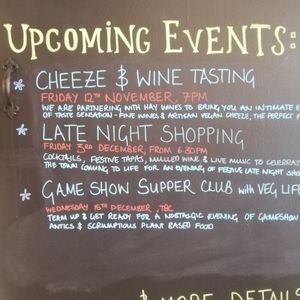 UPCOMING EVENTS:
* CHEEZE & WINE TASTING
FRIDAY 12TH NOVEMBER, 7PM
WE ARE PARTNERING WITH HAY WINES TO BRING YOU AN INTIMATE E
OF TASTE SENSATION - FINE WINES & ARTISAN VEGAN CHEEZE, THE PERFECT
* LATE NIGHT SHOPPING
FRIDAY 3RD DECEMBER, FROM 6.30PM
COCKTAILS, FESTIVE TAPAS, MULLED WINE & LIVE MUSIC TO CELEBRAT
THE TOWN COMING TO LIFE FOR AN EVENING OF FESTIVE LATE NIGHT SHOP
* GAME SHOW SUPPER CLUB WITH VEG LIF
WEDNESDAY 15TH DECEMBER, TBC
TEAM UP & GET READY FOR A NOSTALGIC EVENING OF GAMESHOW
ANTICS & SCRUMPTIOUS PLANT BASED FOOD
& MORE DETAILS